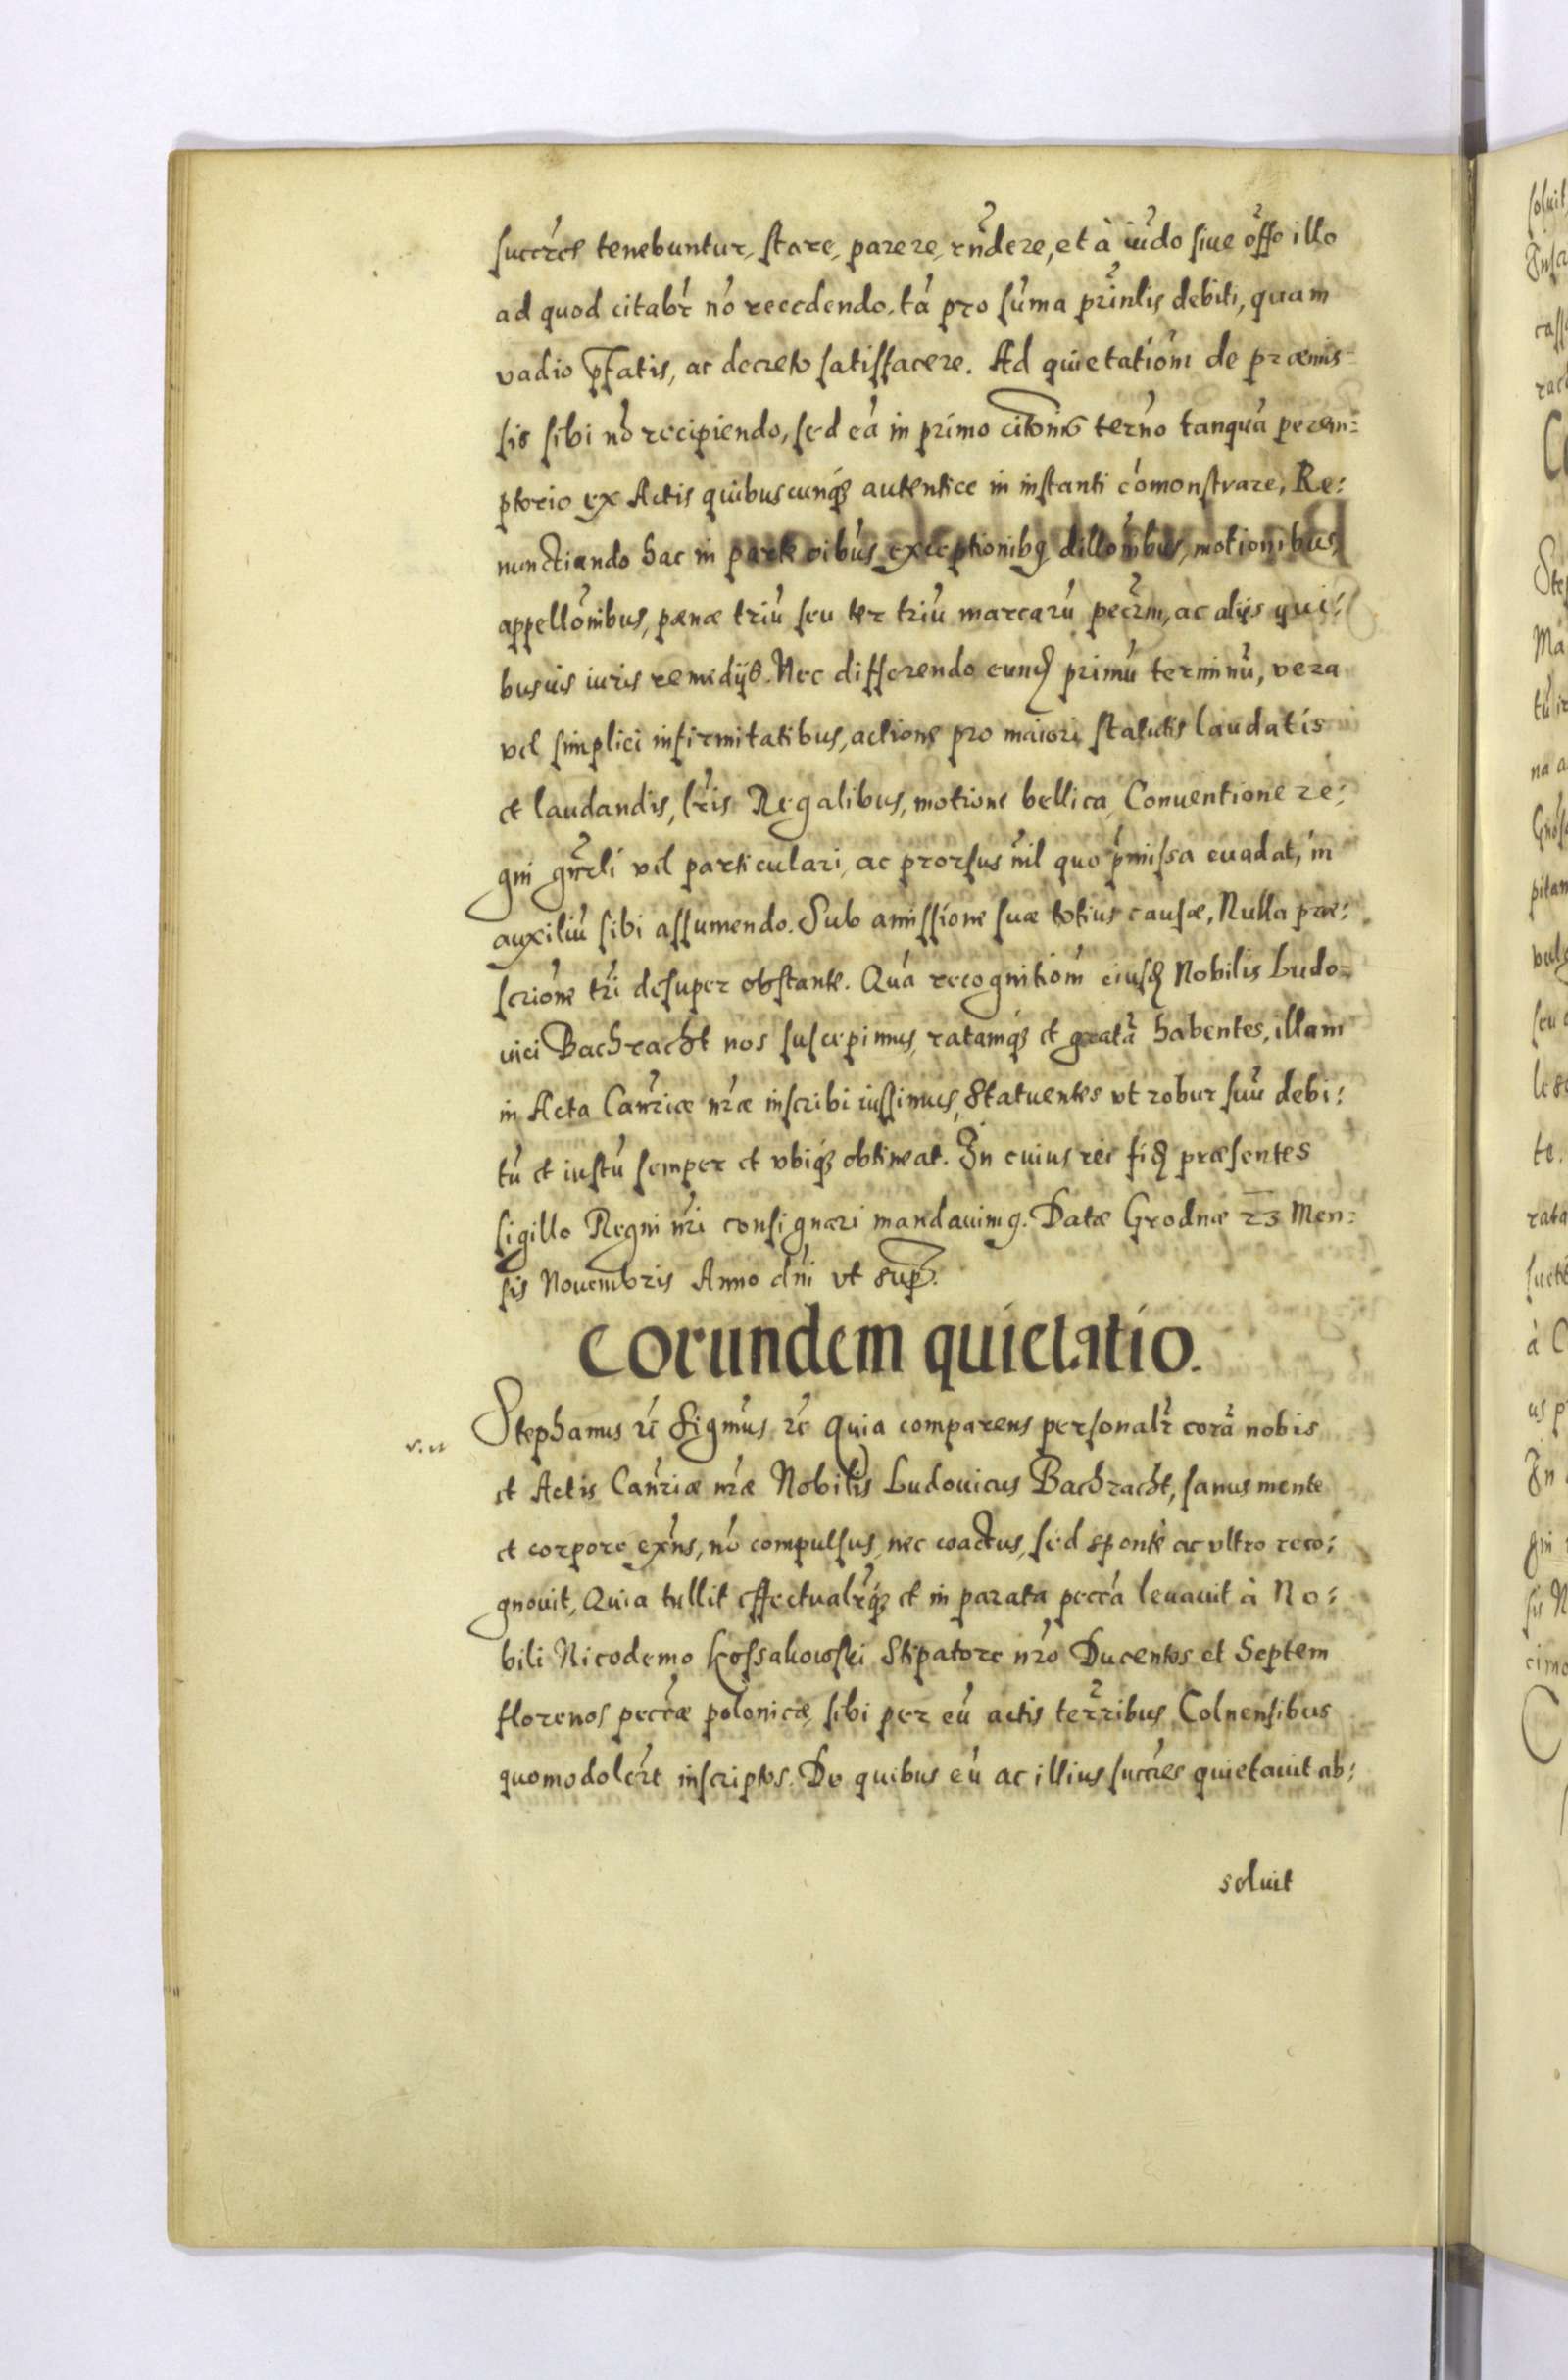 succres tenebuntur, stare, parere, rndere, et à iudo siue offo illo
ad quod citabr nō recedendo, tā pro suma prinlis debiti, quam
vadio pfatis, ac decreto satisfacere. Ad quietationē de præmis-
sis sibi nō recipiendo, sed eā in primo citonis terno tanquā perem:
ptorio ex Actis quibuscunq; autentice in instanti comonstrare, Re:
nunctiando hac in parte oibus exceptionibq dillonibus, motionibus,
appellonibus, pœnæ triū seu ter triū marcarū pecrm, ac alijs qui:
busuis iuris remedijs. Nec differendo eund primū terminū, vera
vel simplici infirmitatibus, actione pro maiori, statutis laudatis
et laudandis, lris Regalibus, motione bellica, Conuentione re:
gni gnrli vel particulari, ac prorsus nil quo pmissa euadat, in
auxiliū sibi assumendo. Sub amissione suæ totius causæ, Nulla præ:
scrione tri desuper obstante. Quā recognitionē eiusd Nobilis Ludo-
uici Bachracht nos suscepimus, ratamq; et gratā habentes, illam
in Acta Canriæ nræ inscribi iussimus, Statuentes vt robur suū debi:
tū et iustū semper et vbiq; obtineat. In cuius rei fid præsentes
sigillo Regni nri consignari mandauimq. Datæ Grodnæ 23 Men:
sis Nouembris Anno dni vt sup.
Eorundem quietatio.
Stephanus rc Sigmus rc Quia comparens personalr corā nobis
et Actis Canriæ nræ Nobilis Ludouicus Bachracht, sanus mente
et corpore exns, nō compulsus, nec coactus, sed sponte ac vltro reco:
gnouit, Quia tullit effectualrq; et in parata peccā leuauit à No:
bili Nicodemo Kossakowski Stipatore nro Ducentos et Septem
florenos peccæ polonicæ, sibi per eū actis terribus Colnensibus
quomodolcrt inscriptos. De quibus eū ac illius succres quietauit ab:
soluit